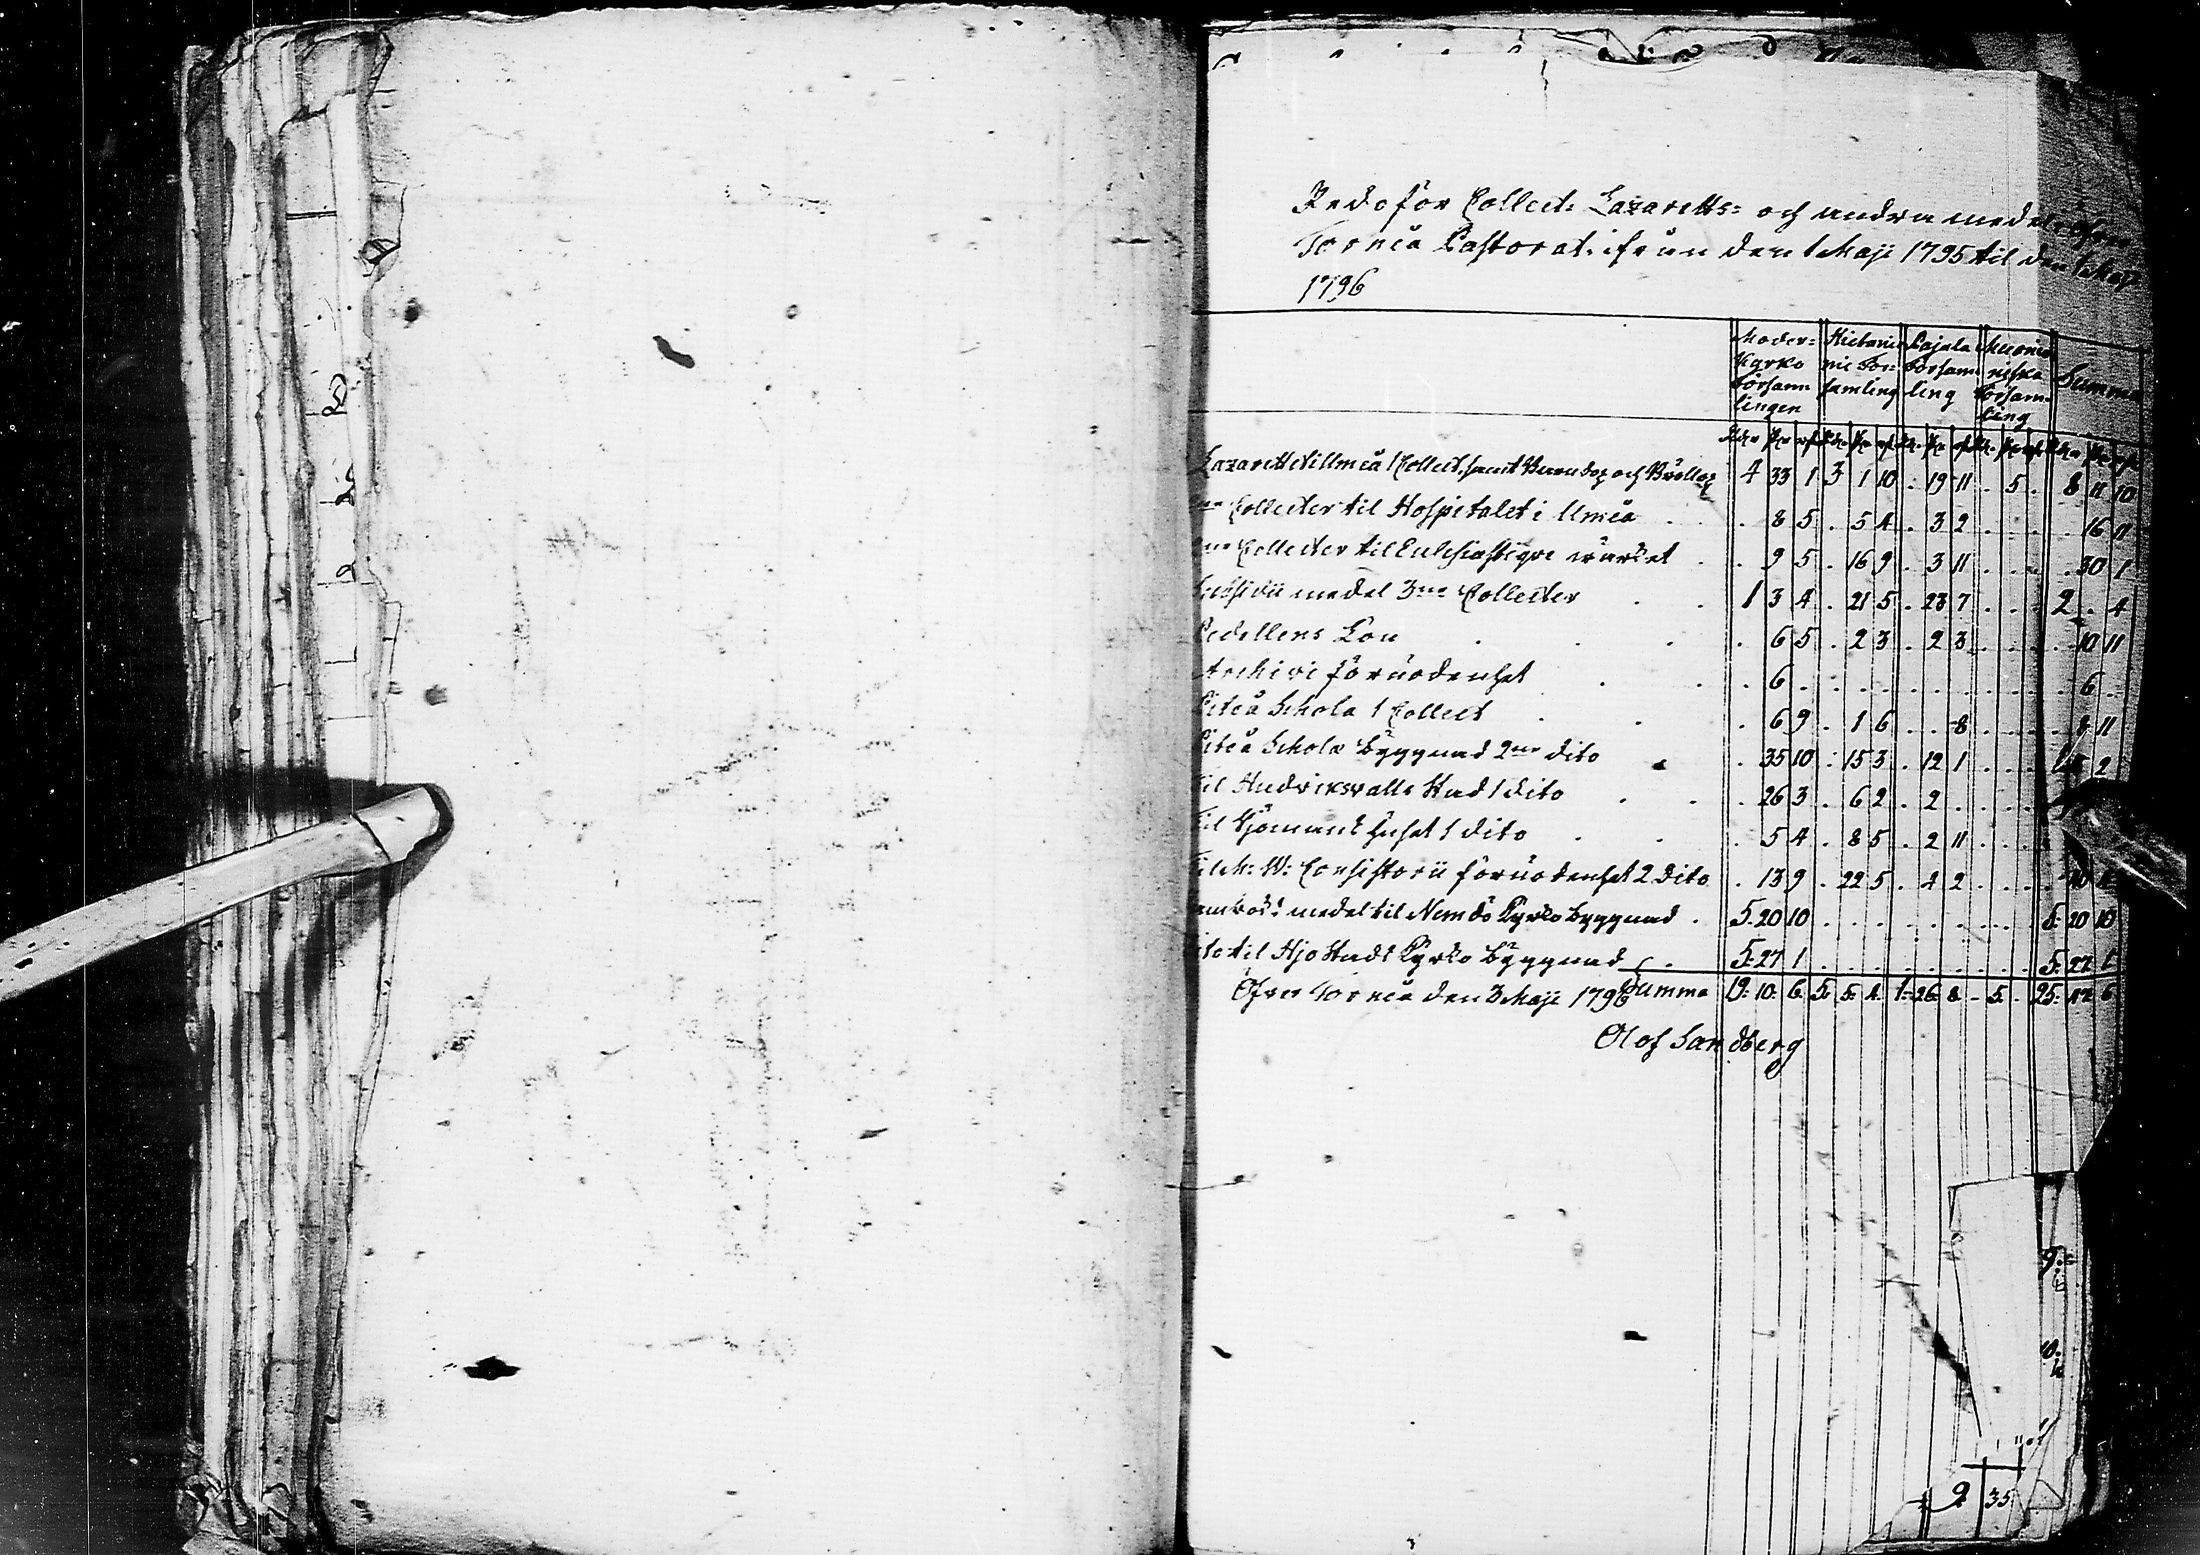 Redo för Collect: Lazaretts: och andra medel
Torneå Pastorat. ifrån den 1 Maji 1795 til den 1 Maji
1796
Moder= Kyrko Församlingen | Hietanie mie För: samling | Pajala Församling | Muonio niska Församling | Summa
Rdr sk rst | Rdr sk rst | Rdr sk rst | Rdr sk rst | Rdr sk rst
Lazarettet i Umeå 1 Collect, samt Barndop och Bröllop 4 33 1 3 1 10 . 19 11 . 5 . 8 11 10
Collecter til Hospitalet i Umeå . 8 5 . 5 4 . 3 2 . . . . 16 11
Collecter til Eclesiastique wärket . 9 5 . 16 9 . 3 11 . . . . 30 1
Subsidii medel 3ne Collecter 1 3 4 . 21 5 . 23 7 . . . 2 . 4
Pedellens Lön . 6 5 . 2 3 . 2 3 . . . . 10 11
Archivi förnödenhet . 6 . . . . . . . . . . . 6 .
Piteå Schola 1 Collect . 6 9 . 1 6 . . 8 . . . . 8 11
Piteå Schole Byggnad 2ne dito . 35 10 . 15 3 . 12 1 . . . 2
til Hudviksvalls Stad 1 dito . 26 3 . 6 2 . 2 . . . .
til Sjömans Huset 1 dito . 5 4 . 8 5 . 2 11 . . .
til M: W: Consistorii förnödenhet 2 dito . 13 9 . 22 5 . 4 2 . . . . 40
medel til Nemdö Kyrko Byggnad . 5. 20 10 . . . . . . . . . 5. 20 10
dito til Hjo Stads Kyrko Byggnad . 5. 27 1 . . . . . . . . . 5. 27 1
Summa 19. 10. 6 5. 5. 4. 1. 26 8 . 5 . 25. 47 6
Öfver Torneå den 3 Maji 1796
Olof Sandberg
9 35